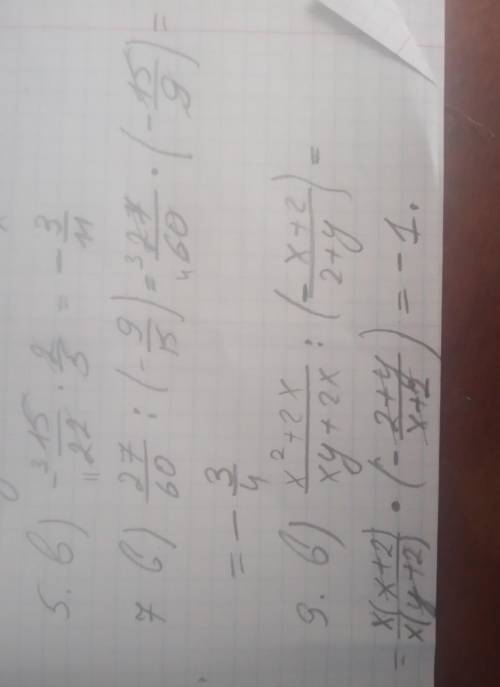 5. б) -15/22 · 2/5 = -3/11
7 б) 27/60 : (-9/15) = 27/60 · (-15/9) =
= -3/4
9. б) x²+2x/xy+2x : (-x+2/2+y) =
= x(x+2)/x(y+2) · (-2+y/x+2) = -1.